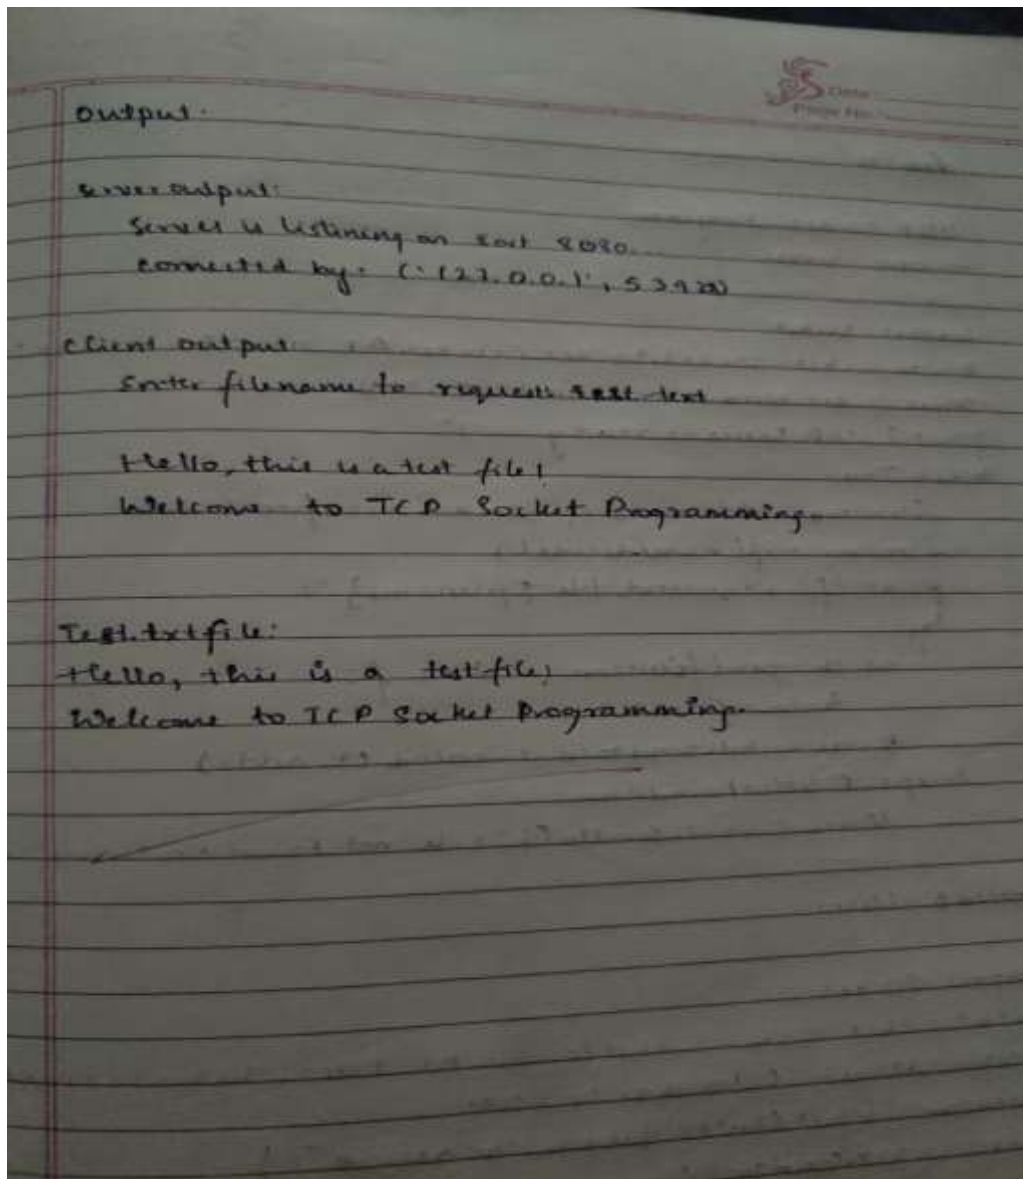 Output.
Server output:
Server is listining on port 8080...
connected by: ('127.0.0.1',
Client output:
Enter filename to request: test.text
Hello, this is a test file!
Welcome to TCP Socket Programming.
Test.txt file:
Hello, this is a test file!
Welcome to TCP Socket Programming.